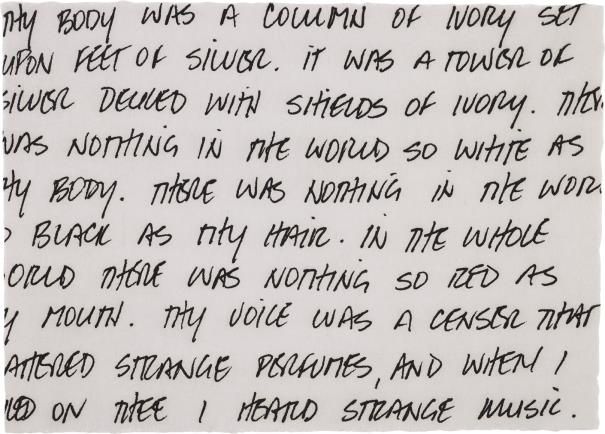 THY BODY WAS A COLUMN OF IVORY SET
UPON FEET OF SILVER. IT WAS A TOWER OF
SILVER DECKED WITH SHIELDS OF IVORY. THERE
WAS NOTHING IN THE WORLD SO WHITE AS
THY BODY. THERE WAS NOTHING IN THE WORL
O BLACK AS THY HAIR. IN THE WHOLE
ORLD THERE WAS NOTHING SO RED AS
Y MOUTH. THY VOICE WAS A CENSER THAT
ATTERED STRANGE PERFUMES, AND WHEN I
KED ON THEE I HEARD STRANGE MUSIC.